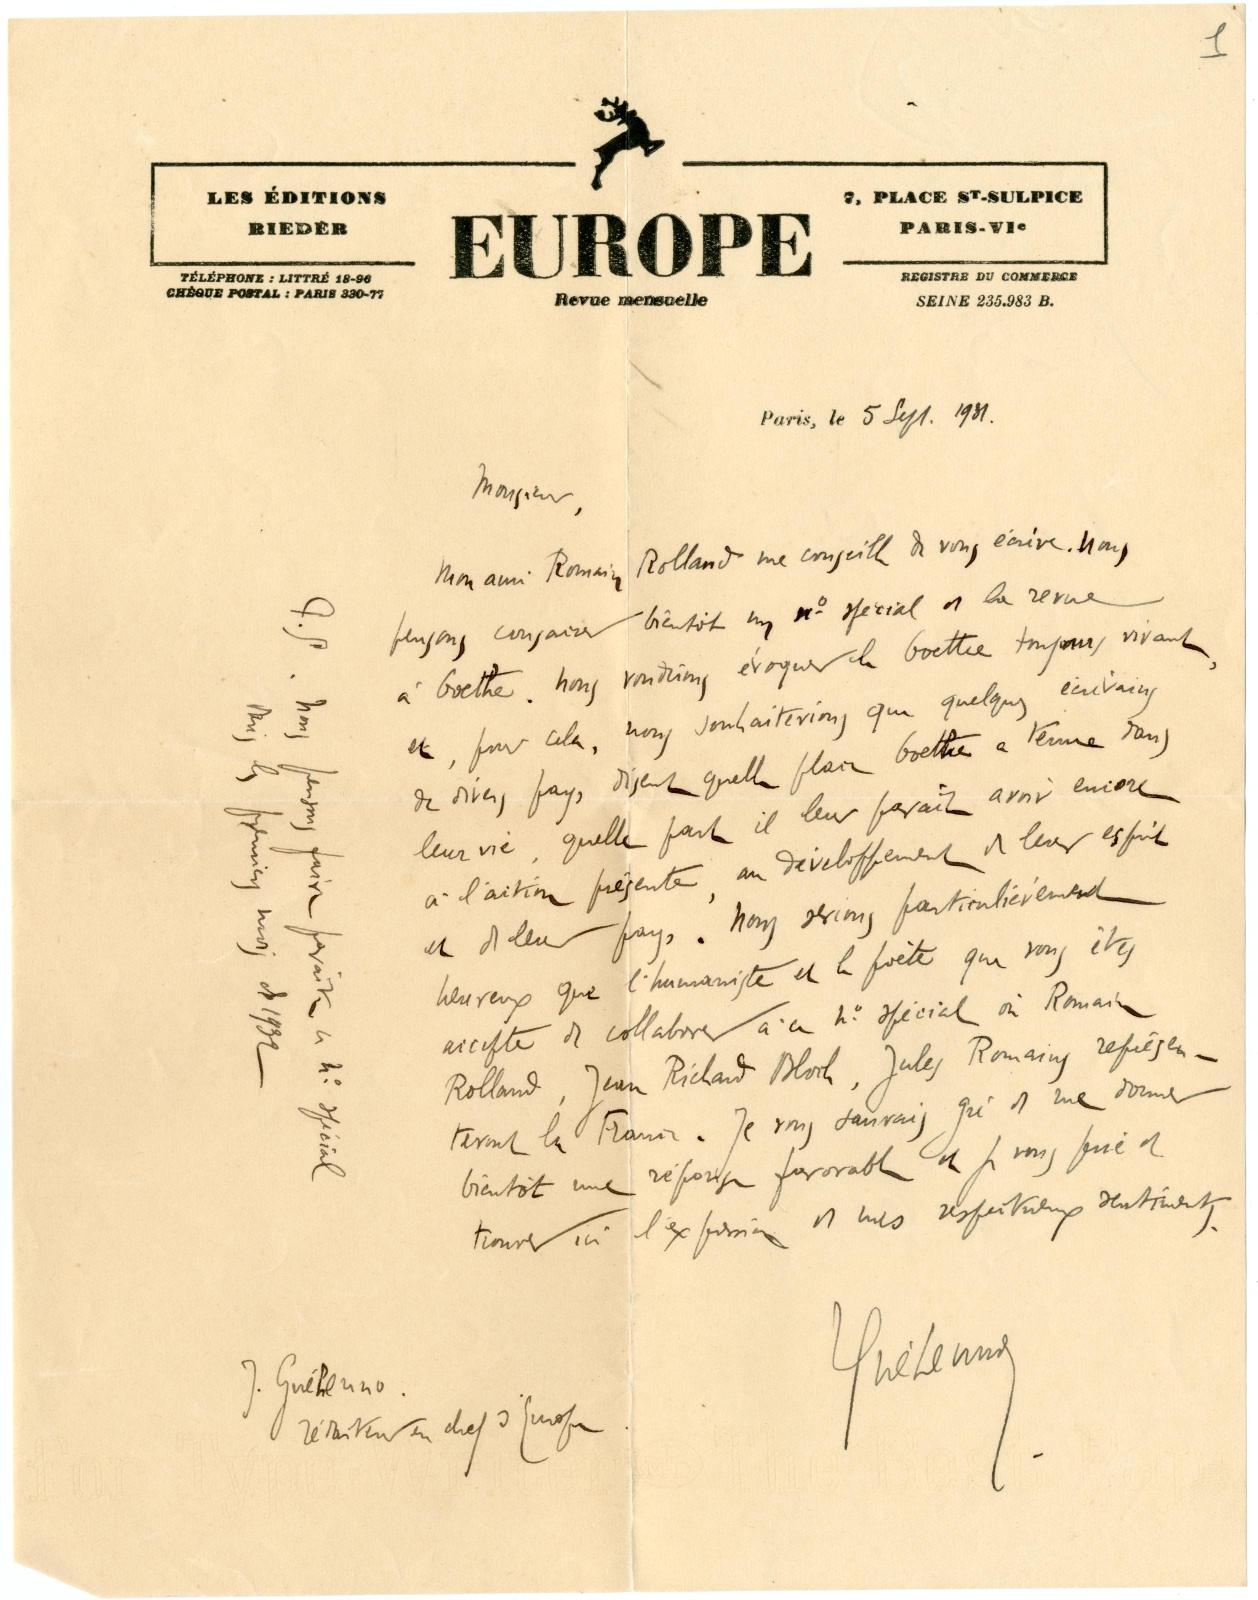 1
LES ÉDITIONS
RIEDER
TÉLÉPHONE : LITTRÉ 18-96
CHÈQUE POSTAL : PARIS 330-77
EUROPE
Revue mensuelle
7, PLACE ST-SULPICE
PARIS-VIe
REGISTRE DU COMMERCE
SEINE 235.983 B.
Paris, le 5 Sept. 1931.
Monsieur,
Mon ami Romain Rolland me conseille de vous écrire. Nous
pensons consacrer bientôt un no spécial de la revue
à Goethe. Nous voudrions évoquer le Goethe toujours vivant,
et, pour cela, nous souhaiterions que quelques écrivains
de divers pays disent quelle place Goethe a tenue dans
leur vie, quelle part il leur paraît avoir encore
à l'action présente, au développement de leur esprit
et de leur pays. Nous serions particulièrement
heureux que l'humaniste et le poète que vous êtes
accepte de collaborer à ce no spécial où Romain
Rolland, Jean Richard Bloch, Jules Romains représen-
teront la France. Je vous saurais gré de me donner
bientôt une réponse favorable et je vous prie de
trouver ici l'expression de mes respectueux sentiments.
Guéhenno
J. Guéhenno.
rédacteur en chef d'Europe.
P.S. Nous pensons faire paraître ce no spécial
dans les premiers mois de 1932